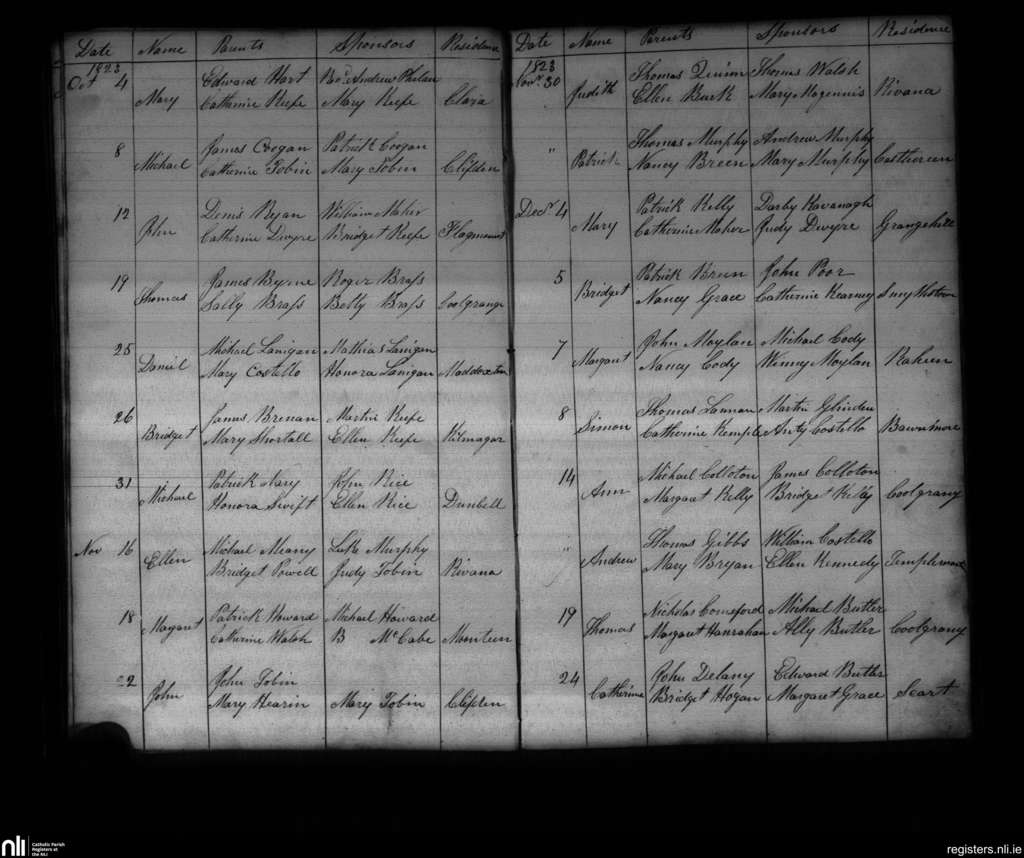 Date Name Parents Sponsors Residence
1823
Oct 4 Edward Hart Andrew Phelan
Mary Catharine Keefe Mary Keefe Clara
8 James Coogan Patrick Coogan
Michael Catherine Tobin Mary Tobin Clifden
12 Denis Ryan William Maher
John Catherine Dwyre Bridget Keefe Flagmount
19 James Byrne Roger Brass
Thomas Sally Brass Betty Brass Coolgrange
25 Michael Lanigan Mathias Lanigan
Daniel Mary Costello Honora Lanigan Maddoxtown
26 James Brenan Martin Keefe
Bridget Mary Shortall Ellen Keefe Kilmagar
31 Patrick John Rice
Michael Honora Swift Ellen Rice Dunbell
Nov 16 Michael Meany Luke Murphy
Ellen Bridget Powell Judy Tobin Rivana
18 Patrick Howard Michael Howard
Margaret Catherine Walsh B McCabe
22 John Tobin
John Mary Hearin Mary Tobin Clifden
Date Name Parents Sponsors Residence
1823
Novr 30 Thomas Quinn Thomas Walsh
Judith Ellen Mary Magennis Rivana
" Thomas Murphy Andrew Murphy
Patrick Nancy Breen Mary Murphy
Decr 4 Patrick Kelly Darby Kavanagh
Mary Catherine Maher Judy Dwyre Grangehill
5 Patrick Breen John Poor
Bridget Nancy Grace Catherine Kearney Smythstown
7 John Moylan Michael Cody
Margaret Nancy Cody Winny Moylan Raheen
8 Thomas Lannan Martin
Simon Catherine Kemple Anty Costello Bawnmore
14 Michael Colloton James Colloton
Ann Margaret Kelly Bridget Kelly Coolgrany
" Thomas Gibbs William Costello
Andrew Mary Bryan Ellen Kennedy Templemartin
19 Nicholas Comeford Michael Butler
Thomas Margaret Hanrahan Ally Butler Coolgrany
24 John Delany Edward Butler
Catherine Bridget Hogan Margaret Grace Scart
nli Catholic Parish
Registers at
the NLI
registers.nli.ie